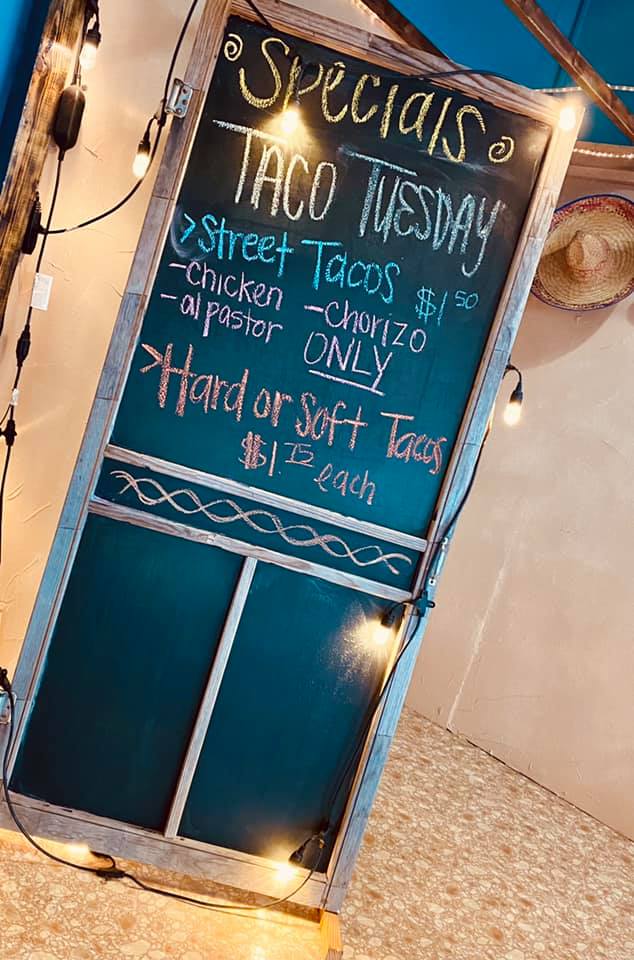 Specials
TACO TUESDAY
>Street Tacos $1.50
-chicken -chorizo
-al pastor ONLY
>Hard or Soft Tacos
$1.75 each